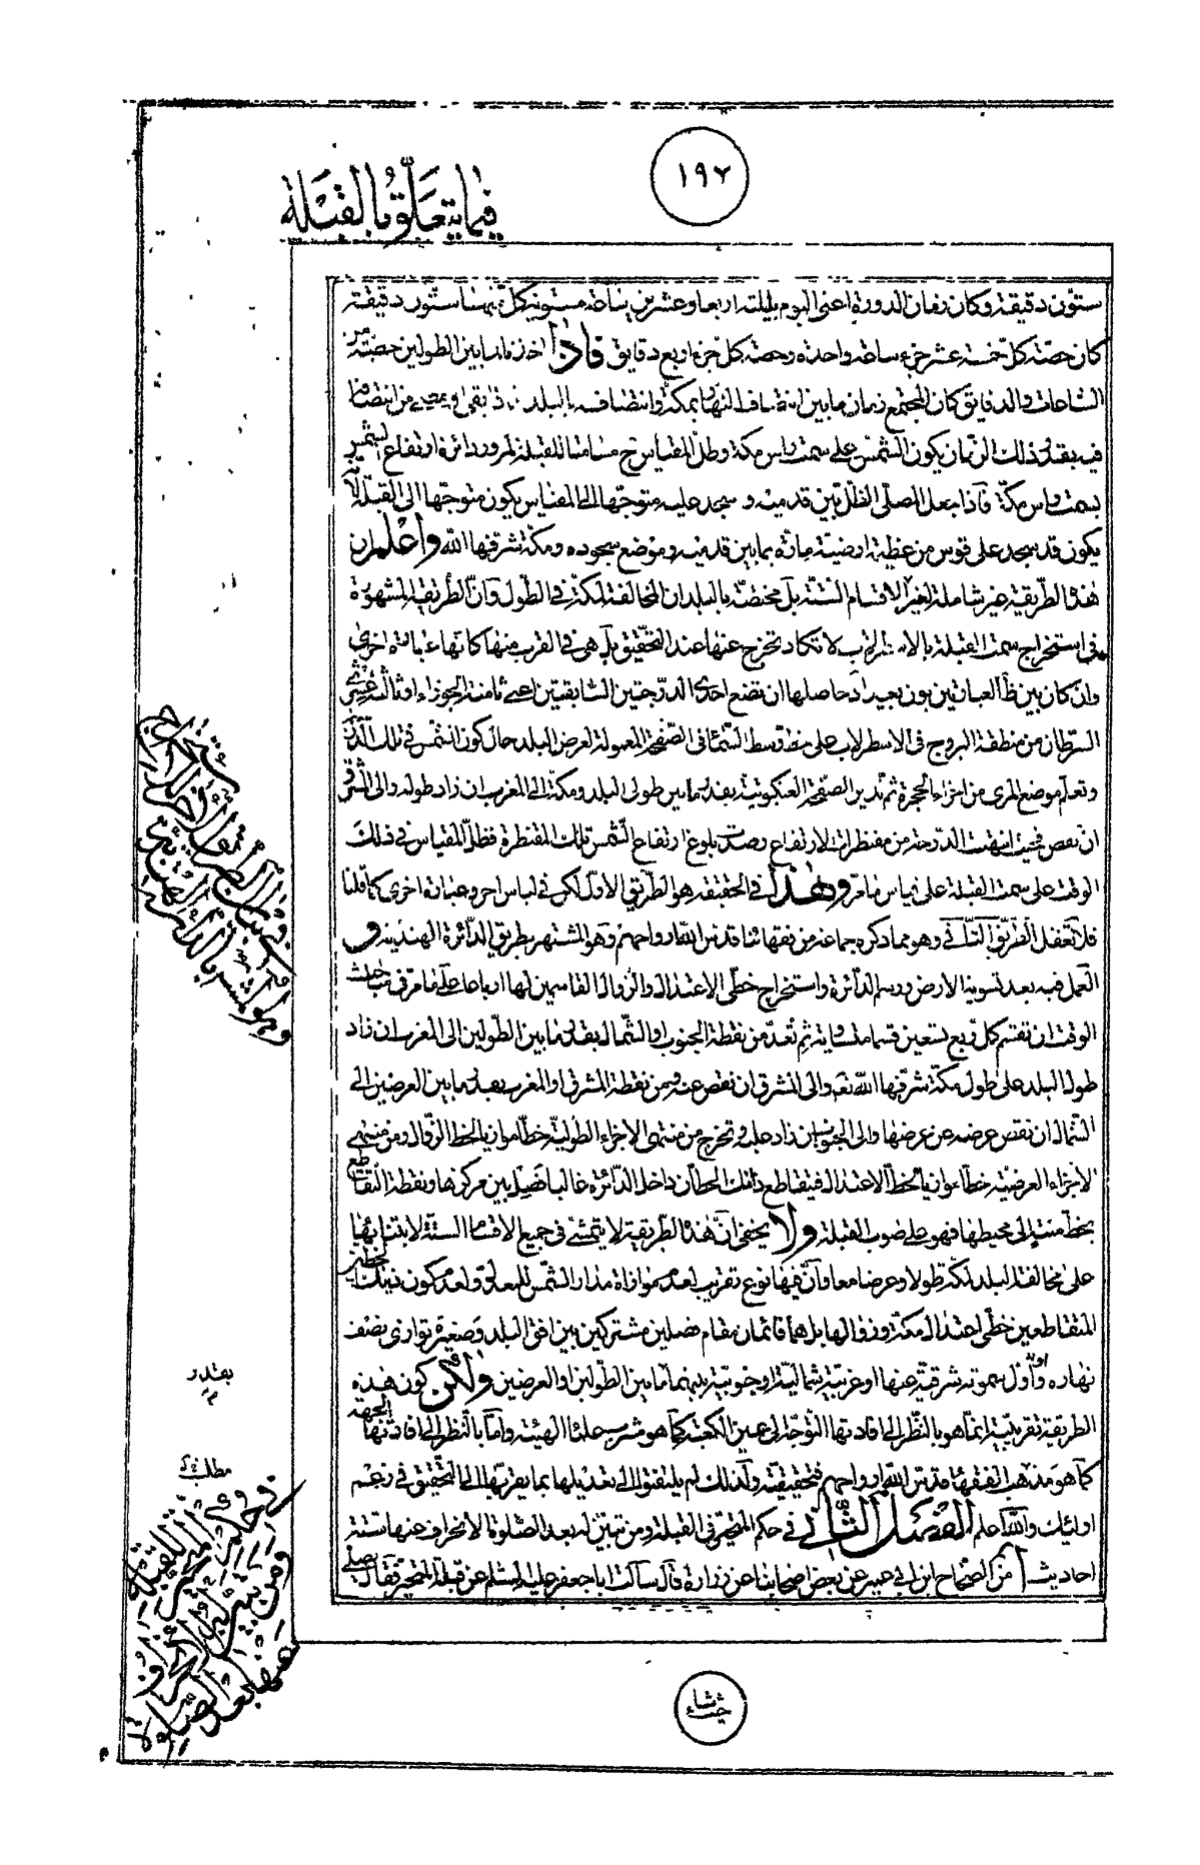 ١٩٧
فيما يتعلّق بالقبلة
ستون دقيقة وكان زمان الدورة اعنى اليوم بليلته اربعا وعشرين ساعة مستوية كل منها ستون دقيقة
كان حصة كل خمسة عشر جزء ساعة واحدة وحصة كل جزء اربع دقايق فاذا اخذ لما بين الطولين حصته من
الساعات والدقايق كان المجتمع زمان ما بين انتصاف النهار بمكة وانتصافه بالبلد
فيه بقدر ذلك الزمان يكون الشمس على سمت راس مكة وظل المقياس ح مسامتا للقبلة لمرور دائرة ارتفاع الشمس
بسمت راس مكة فاذا جعل المصلى الظل بين قدميه و سجد عليه متوجها الى المقياس يكون متوجها الى القبلة لانه
يكون قد سجد على قوس من عظيمة ارضية مارة بما بين قدميه وموضع سجوده ومكة شرفها الله واعلم ان
هذه الطريقة غير شاملة لغير الاقسام الستة بل مختصة بالبلدان المخالفة لمكة في الطول وان الطريقة المشهورة
في استخراج سمت القبلة بالاسطرلاب لا تكاد تخرج عنها عند التحقيق بل هى في القرب منها كانها عبارة اخرى
وان كان بين ظ العبارتين بون بعيد اذ حاصلها ان تضع احدى الدرجتين السابقتين اعنى ثامنة الجوزاء او ثالثة عشرى
السرطان من منطقة البروج فى الاسطرلاب على خط وسط السماء فى الصفحة المعمولة لعرض البلد حال كون الشمس في تلك الدرجة
وتعلم موضع المرى من اجزاء الحجرة ثم تدير الصفحة العنكبوتية بقدر ما بين طولى البلد ومكة الى المغرب ان زاد طوله والى المشرق
ان نقص فحيث انتهت الدرجة من مقنطرات الارتفاع رصدت بلوغ ارتفاع الشمس تلك المقنطرة فظل المقياس في ذلك
الوقت على سمت القبلة على قياس ما مر وهذا في الحقيقة هو الطريق الاول لكن في لباس اخر وعبارة اخرى كما قلنا
فلا تغفل الطريق الثانى وهو مما ذكره جماعة من فقهائنا قدس الله ارواحهم وهو المشتهر بطريق الدائرة الهندية و
العمل فيه بعد تسوية الارض ورسم الدائرة واستخراج خطى الاعتدال والزوال القاسمين لها ارباعا على ما مر فى مباحث
الوقت ان تقسم كل ربع تسعين قسما متساوية ثم تعد من نقطة الجنوب او الشمال بقدر ما بين الطولين الى المغرب ان زاد
طول البلد على طول مكة شرفها الله تعـ والى المشرق ان نقص عنه ومن نقطة المشرق او المغرب بعد ما بين العرضين الى
الشمال ان نقص عرضه عن عرضها والى الجنوب ان زاد عليه وتخرج من منتهى الاجزاء الطولية خطا موازيا لخط الزوال ومن منتهى
الاجزاء العرضية خطا موازيا لخط الاعتدال فيتقاطع ذانك الخطان داخل الدائرة غالبا فصل بين مركزها ونقطة التقاطع
بخط منته الى محيطها فهو على صوب القبلة ولا يخفى ان هذه الطريقة لا يتمشى في جميع الاقسام الستة لابتنائها
على مخالفة البلد لمكة طولا وعرضا معا وان فيها نوع تقريب لعدم موازاة مدار الشمس للمعدل ولعدم كون ذينك الخطين
المتقاطعين خطى اعتدال مكة وزوالها بل هما قائمان مقام فصلين مشتركين بين افق البلد وصغيرة توازى نصف
نهاره واول سموته شرقية عنها او غربية شمالية او جنوبية بينهما ما بين الطولين او العرضين ولكن كون هذه
الطريقة تقريبية انما هو بالنظر الى افادتها التوجه الى عين الكعبة كما هو مشرب علماء الهيئة واما بالنظر الى افادتها الجهة
كما هو مذهب الفقهاء قدس الله ارواحهم فتحقيقية ولذلك لم يلتفتوا الى تعديلها بما يقربها الى التحقيق في زعم
اولئك والله اعلم الفصل الثانى في حكم المتحير فى القبلة ومن تبين له بعد الصلوة الانحراف عنها ستة
احاديث ا من الصحاح ابن ابى عمير عن بعض اصحابنا عن زرارة قال سالت ابا جعفر عليه السلم عن قبلة المتحير فقال يصلى
بقدر
مطلب
في حكم المتحير في القبلة
ومن تبين له الانحراف
عنها بعد الصلوة